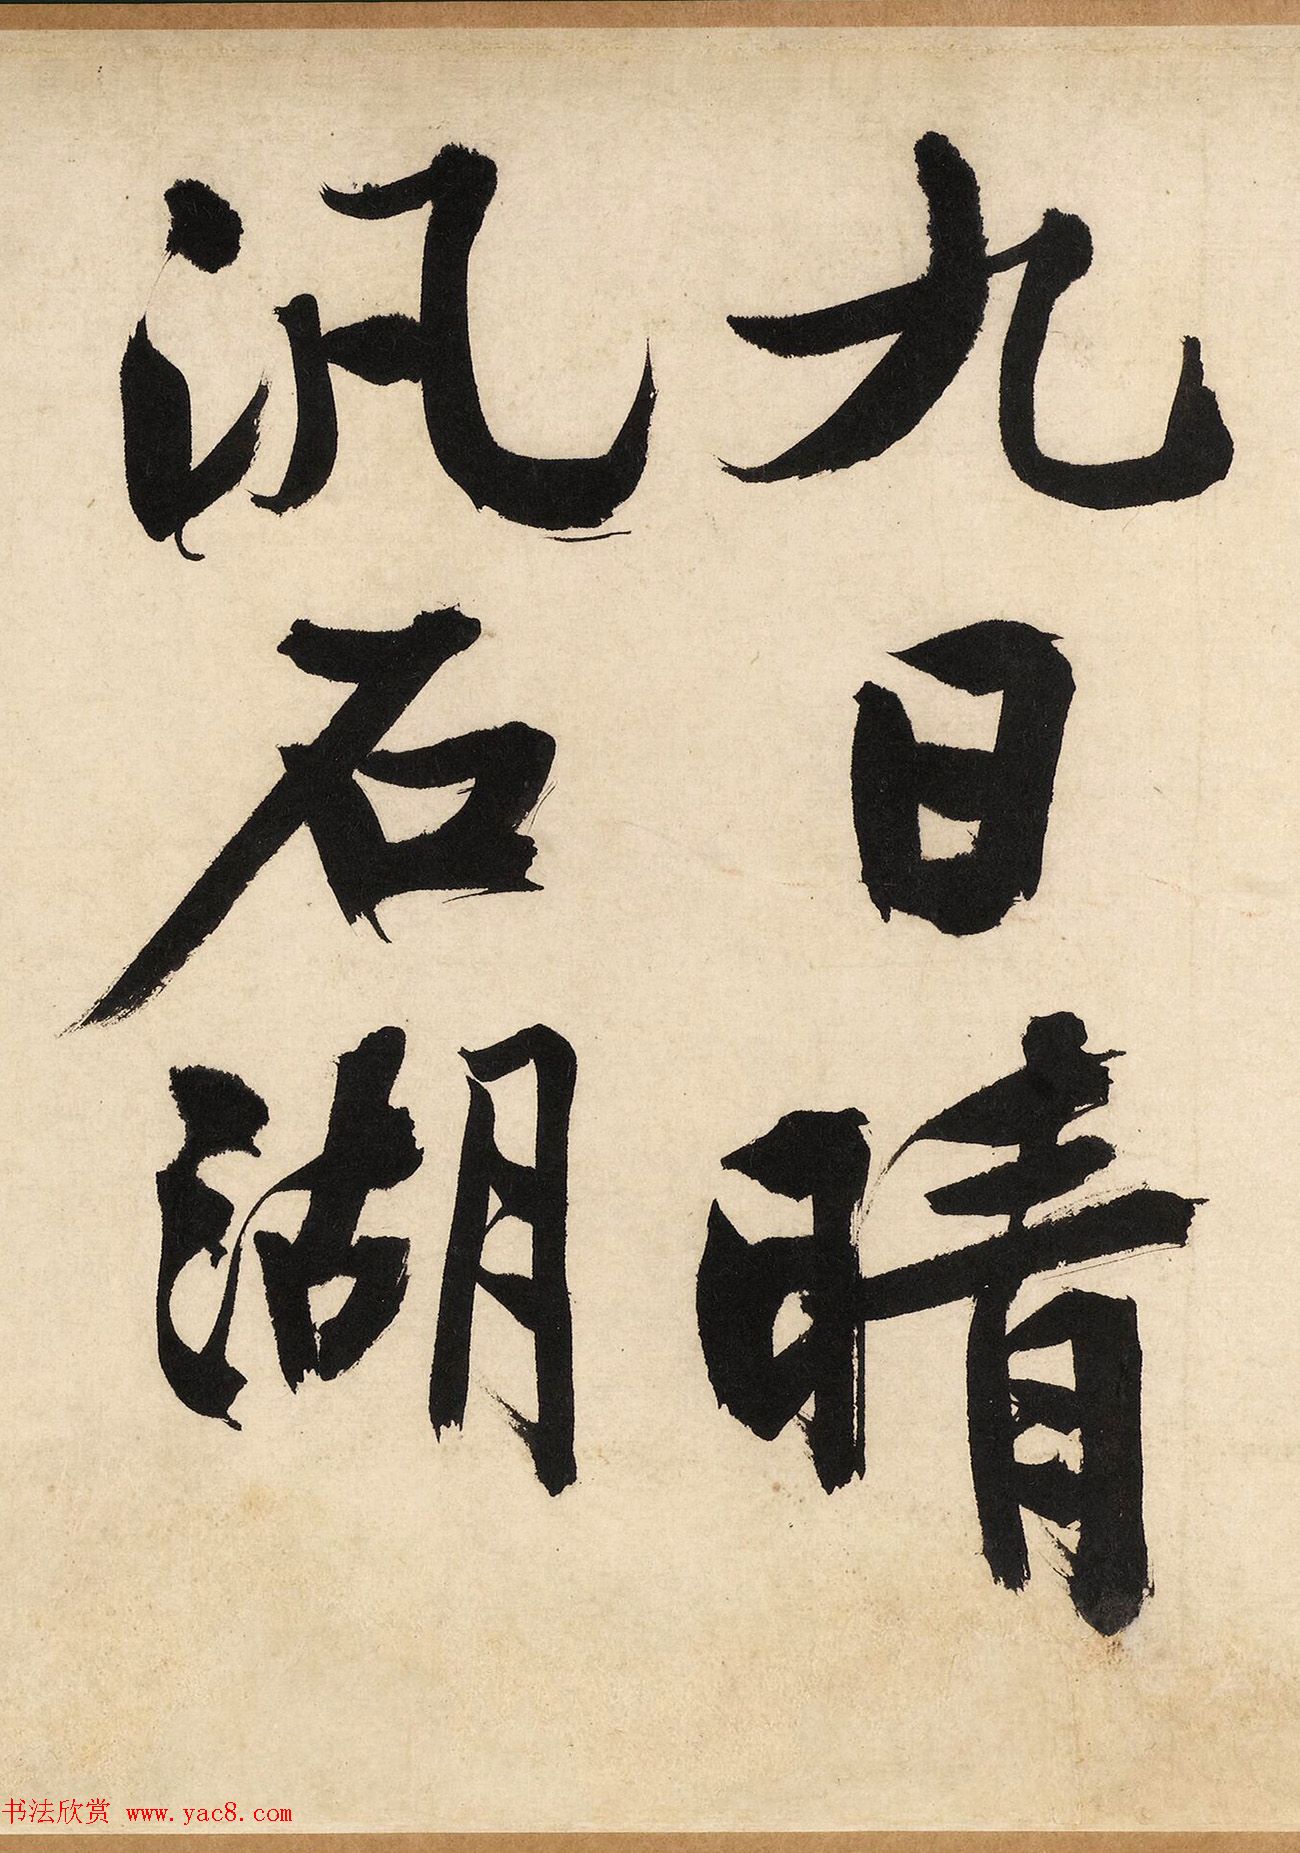 九日晴
汎石湖
书法欣赏 www.yac8.com